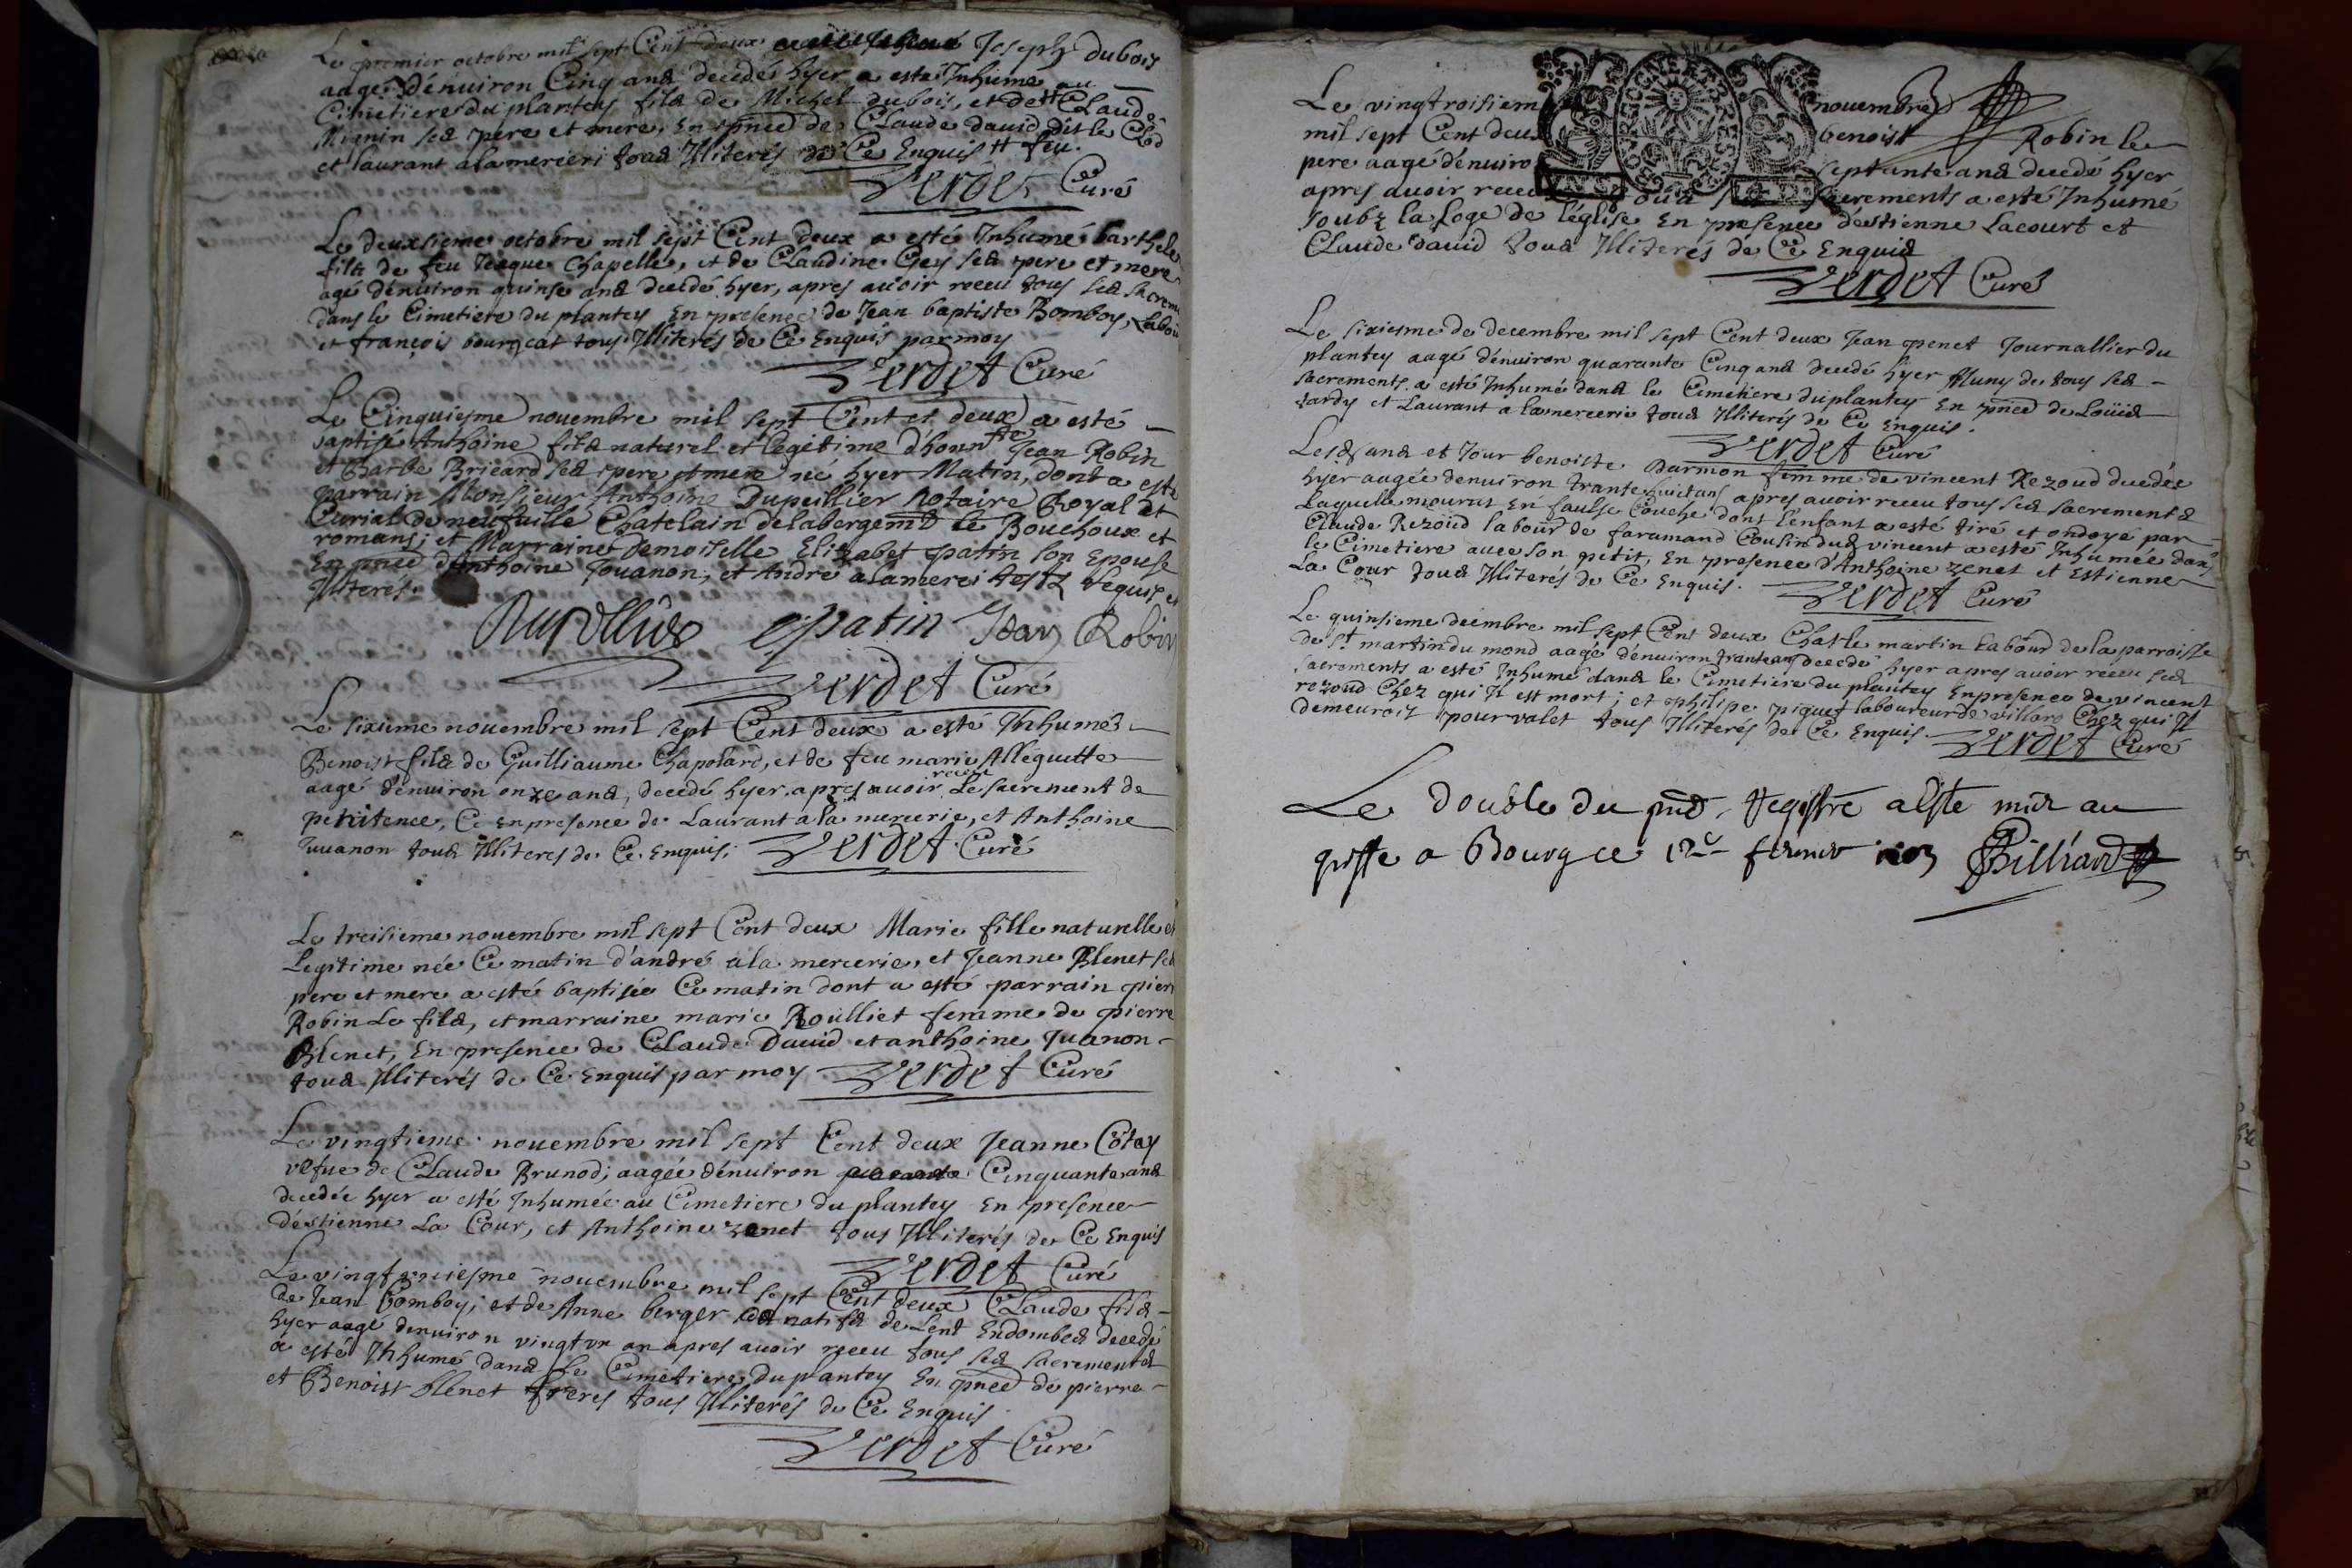 Le premier octobre mil sept Cent deux Joseph dubois
aagé dénuiron Cinq ans decedé hyer a esté Inhumé au
Cimetiere du plantey fils de Michel dubois, et de # Claude
Mignin ses pere et mere, En pñce de Claude dauid dit le Clod
et laurant alamercerì tous Illiterés de Ce Enquis # feu.
Verdet Curé
Le deuxsieme octobre mil sept Cent deux a esté Inhumé barthele
fils de feu Jeaque Chapelle, et de Claudine Gey ses pere et mere
agé dénuiron quinse ans decedé hyer, apres auoir receu tous ses sacrem
dans le Cimetiere du plantey En presence de Jean baptiste Bomboy, Labou
et françois bourgeat tous Illiterés de Ce Enquis par moy
Verdet Curé
Le Cinquiesme nouembre mil sept Cent et deux a esté
baptisé Anthoine fils naturel et legitime d'honnte Jean Robin
et Barbe Bricard ses pere et mere né hyer Matin, dont a esté
parrain Monsieur Anthoine Dupeillier Notaire Royal et
Curial de neufuille Chatelain delabergemt le Bouchoux et
romans; et Marraine Demoiselle Elizabet patin son Epouse
En pñce d'Anthoine Jouanon, et André alamerci testz requis et
Illiterés.
Dupellier epatin Jean Robin
Verdet Curé
Le sixieme nouembre mil sept Cent deux a esté Inhumé
Benoist fils de Guilliaume Chapolard, et de feu marie Alleguette
aagé dénuiron onze ans, decedé hyer, apres auoir receu Le sacrement de
penitence, Ce en presence de Laurant a la mercerie, et Anthoine
Juuanon tous Illiteres de Ce Enquis; Verdet Curé
Le treisieme nouembre mil sept Cent deux Marie fille naturelle et
Legitime née Ce matin d'andré ala mercerie, et Jeanne Blenet ses
pere et mere a esté baptisée Ce matin dont a esté parrain pierr
Robin Le fils, et marraine marie Roulliet femme de pierre
Blenet, En presence de Claude Dauid et anthoine Juanon
tous Illiterés de Ce Enquis par moy Verdet Curé
Le vingtieme nouembre mil sept Cent deux Jeanne Côtay
vefue de Claude Brunod, aagée dénuiron quarante Cinquante ans
decedée hyer a esté Inhumée au Cimetiere du plantey En presence
déstienne La Cour, et Anthoine zenet tous Illiterés de Ce Enquis
Verdet Curé
Le vingtvniesme nouembre mil sept Cent deux Claude fils
de Jean Bomboy; et de Anne berger natifs de Lent Endombes decedé
hyer aagé denuiron vingt vn an apres auoir receu tous ses sacrements
a esté Inhumé dans Le Cimetiere du plantey En pñce de pierre
et Benoist blenet freres tous Illiterés de Ce Enquis
Verdet Curé
Le vingtroisiem nouembre
mil sept Cent deux benoist Robin le
pere aagé dénuiro septante ans decedé hyer
apres auoir receu tous ses sacrements a esté Inhumé
soubz la Loge de léglise En presence déstienne Lacourt et
Claude dauid tous Illiterés de Ce Enquis
Verdet Curé
Le sixiesme de decembre mil sept Cent deux Jean penet Journallier du
plantey aagé dénuiron quarante Cinq ans decedé hyer Muny de tous ses
sacrements a esté Inhumé dans le Cimetiere du plantey En pñce de Loüis
tardy et Laurant a lamercerie tous Illiterés de Ce Enquis.
Verdet Curé
Lesds ans et Jour benoiste Darmon femme de vincent Rezoud decedée
hyer aagée denuiron trante huictans apres auoir receu tous ses sacrements
Laquelle mourut En faulse Couche dont l'enfant a esté tiré et ondoyé par
Claude Rezoüd labour de faramand Cousin dud vincent a esté Inhumée dans
le Cimetiere auec son petit, En presence d'Anthoine zenet et Estienne
La Cour tous Illiterés de Ce Enquis. Verdet Curé
Le quinsieme decmbre mil sept Cent deux Charle martin Labour de la parroisse
de St martin du mond aagé dénuiron trante ans decedé hyer apres auoir receu ses
sacrements a esté Inhumé dans le Cimetiere du plantey En presence de vincent
rezoud Chez qui Il est mort; et philipe piquet laboureur de villars Chez qui Il
demeuroit pour valet tous Illiterés de Ce Enquis. Verdet Curé
Le double du pñt Registre a esté mis au
greffe a Bourg ce feurier 1703 Billiard